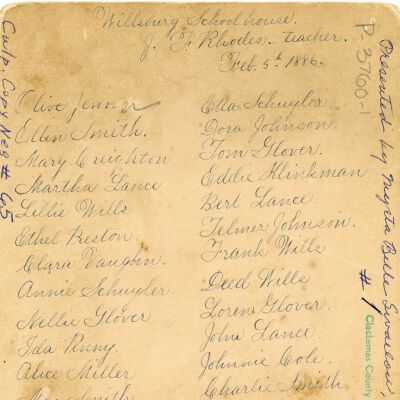 Willsburg Schoolhouse.
J. F. Rhodes - teacher.
Feb. 5th 1886.
Olive Jenner
Ellen Smith.
Mary Creighton
Martha Lance
Lillie Wills
Ethel Preston.
Clara Vaughn.
Annie Schuyler.
Nellie Glover
Ida
Alice Miller
Smith
Ella Schuyler.
Dora Johnson.
Tom Glover.
Eddie Klinkman
Bert Lance.
Telmer Johnson.
Frank Wills
Deed Wills
Loren Glover.
John Lance.
Johnnie Cole.
Charlie Smith
Culp. Copy Neg # 65
P-3760-1
Presented by Myrta Belle
#1
Clackamas County